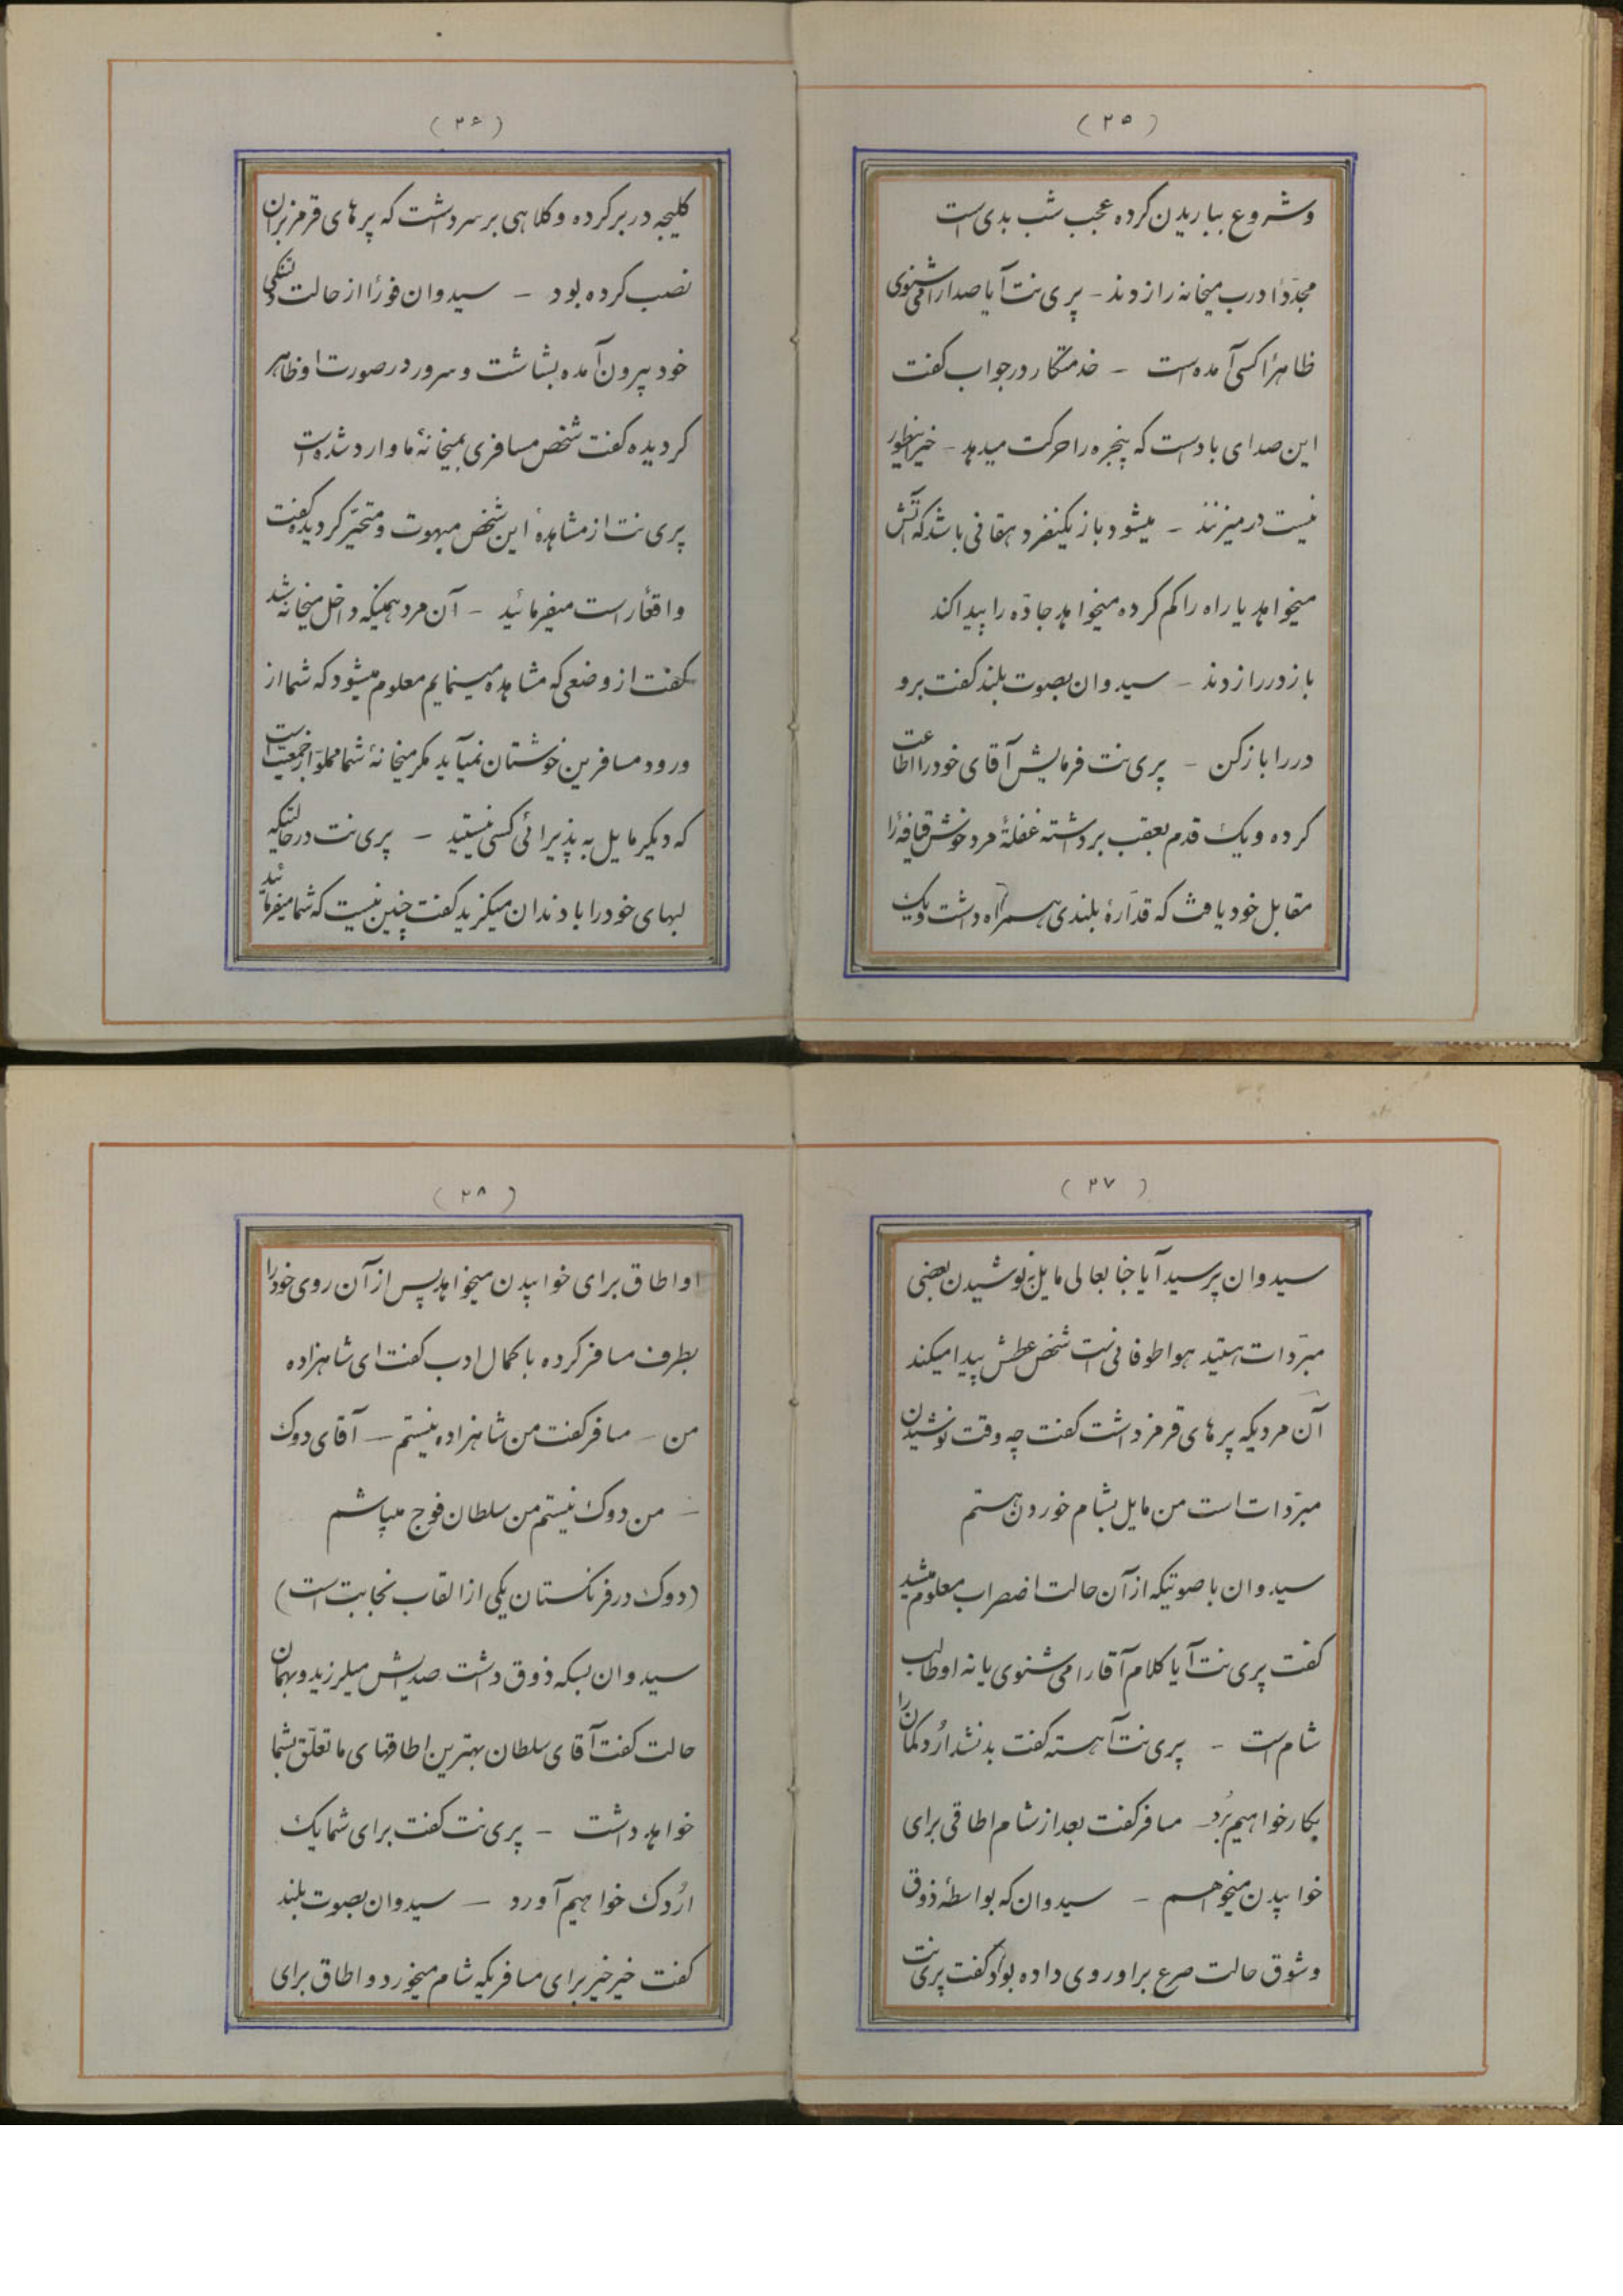 (۲۵)
وشروع بباریدن کرده عجب شب بدی است
مجدّداً درب میخانه را زدند - پری نت آیا صدا را می شنوی
ظاهراً کسی آمده است - خدمتکار در جواب گفت
این صدای باد است که پنجره را حرکت میدهد - خیر اینطور
نیست در میزنند - میشود باز یکنفر دهقانی باشد که آتش
میخواهد یا راه را گم کرده میخواهد جادّه را پیدا کند
باز در را زدند - سیدوان بصوت بلند گفت برو
در را باز کن - پری نت فرمایش آقای خود را اطاعت
کرده و یک قدم بعقب برداشته غفلةً مرد خوش قیافهٔ را
مقابل خود یافت که قدّارهٔ بلندی همراه داشت و یک
(۲۶)
کلیجه در بر کرده و کلاهی بر سر داشت که پرهای قرمز بر آن
نصب کرده بود - سیدوان فوراً از حالت دلتنگی
خود بیرون آمده بشاشت و سرور در صورت او ظاهر
گردیده گفت شخص مسافری بمیخانهٔ ما وارد شده است
پری نت از مشاهدهٔ این شخص مبهوت و متحیّر گردیده گفت
واقعاً راست میفرمائید - آن مرد همینکه داخل میخانه شد
گفت از وضعی که مشاهده مینمایم معلوم میشود که شما از
ورود مسافرین خوشتان نمیآید مگر میخانهٔ شما مملوّ از جمعیّت است
که دیگر مایل به پذیرائی کسی نیستید - پری نت در حالتیکه
لبهای خود را با دندان میگزید گفت چنین نیست که شما میفرمائید
(۲۷)
سیدوان پرسید آیا جنابعالی مایل به نوشیدن بعضی
مبرّدات هستید هوا طوفانی است شخص عطش پیدا میکند
آن مردیکه پرهای قرمز داشت گفت چه وقت نوشیدن
مبرّدات است من مایل بشام خوردن هستم
سیدوان با صوتیکه از آن حالت اضطراب معلوم میشد
گفت پری نت آیا کلام آقا را می شنوی یا نه او طالب
شام است - پری نت آهسته گفت بد نشد اُردکمان را
بکار خواهیم بُرد - مسافر گفت بعد از شام اطاقی برای
خوابیدن میخواهم - سیدوان که بواسطهٔ ذوق
وشوق حالت صرع بر او روی داده بود گفت پری نت
(۲۸)
او اطاق برای خوابیدن میخواهد پس از آن روی خود را
بطرف مسافر کرده با کمال ادب گفت ای شاهزاده
من - مسافر گفت من شاهزاده نیستم - آقای دوک
- من دوک نیستم من سلطان فوج میباشم
(دوک در فرنگستان یکی از القاب نجابت است)
سیدوان بسکه ذوق داشت صدایش میلرزید و بهمان
حالت گفت آقای سلطان بهترین اطاقهای ما تعلّق بشما
خواهد داشت - پری نت گفت برای شما یک
اُردک خواهیم آورد - سیدوان بصوت بلند
گفت خیر خیر برای مسافریکه شام میخورد و اطاق برای